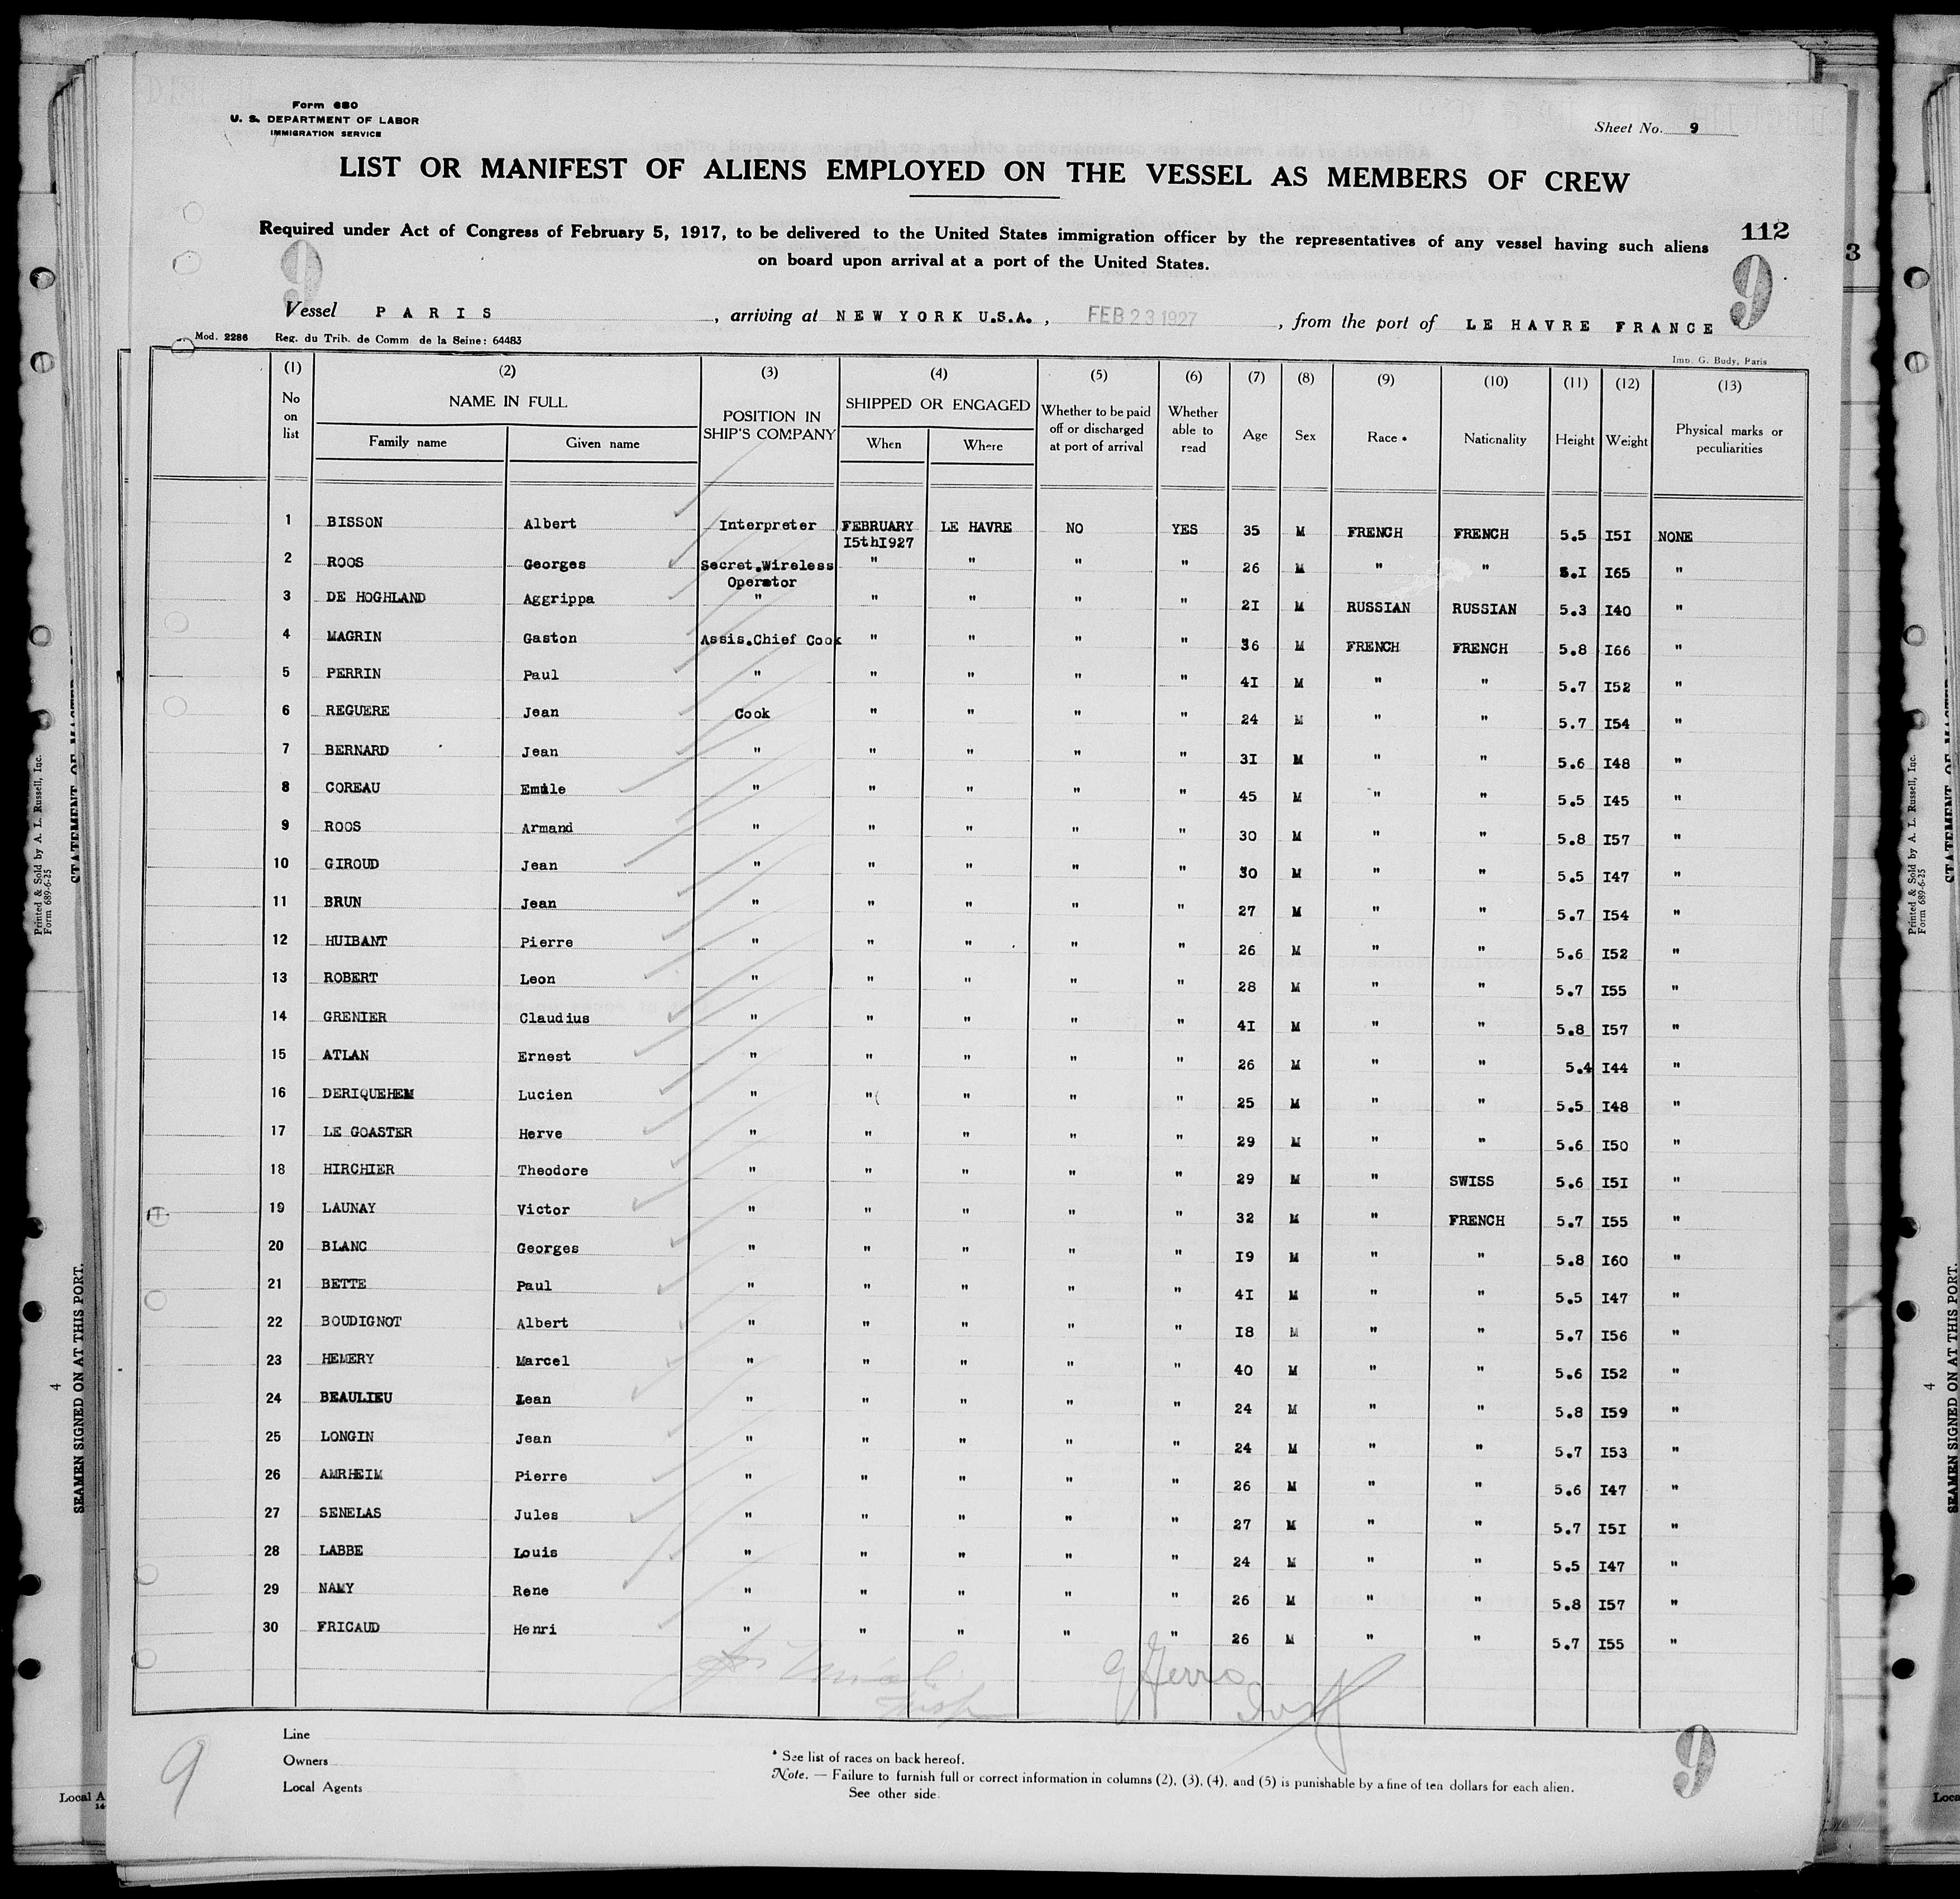 Form 680
U. S. DEPARTMENT OF LABOR
IMMIGRATION SERVICE
Sheet No. 9
LIST OR MANIFEST OF ALIENS EMPLOYED ON THE VESSEL AS MEMBERS OF CREW
112
Required under Act of Congress of February 5, 1917, to be delivered to the United States immigration officer by the representatives of any vessel having such aliens
on board upon arrival at a port of the United States.
9 9
Vessel PARIS, arriving at NEW YORK U.S.A., FEB 23 1927, from the port of LE HAVRE FRANCE
Mod. 2286 Reg. du Trib. de Comm de la Seine: 64483
Imp. G. Budy, Paris
(1) (2) (3) (4) (5) (6) (7) (8) (9) (10) (11) (12) (13)
No on list NAME IN FULL Family name Given name POSITION IN SHIP'S COMPANY SHIPPED OR ENGAGED When Where Whether to be paid off or discharged at port of arrival Whether able to read Age Sex Race * Nationality Height Weight Physical marks or peculiarities
1 BISSON Albert Interpreter FEBRUARY 15thI927 LE HAVRE NO YES 35 M FRENCH FRENCH 5.5 I5I NONE
2 ROOS Georges Secret.Wireless Operator " " " " 26 M " " 5.I I65 "
3 DE HOGHLAND Aggrippa " " " " " 2I M RUSSIAN RUSSIAN 5.3 I40 "
4 MAGRIN Gaston Assis.Chief Cook " " " " 36 M FRENCH FRENCH 5.8 I66 "
5 PERRIN Paul " " " " " 4I M " " 5.7 I52 "
6 REGUERE Jean Cook " " " " 24 M " " 5.7 I54 "
7 BERNARD Jean " " " " " 3I M " " 5.6 I48 "
8 COREAU Emile " " " " " 45 M " " 5.5 I45 "
9 ROOS Armand " " " " " 30 M " " 5.8 I57 "
10 GIROUD Jean " " " " " 30 M " " 5.5 I47 "
11 BRUN Jean " " " " " 27 M " " 5.7 I54 "
12 HUIBANT Pierre " " " " " 26 M " " 5.6 I52 "
13 ROBERT Leon " " " " " 28 M " " 5.7 I55 "
14 GRENIER Claudius " " " " " 4I M " " 5.8 I57 "
15 ATLAN Ernest " " " " " 26 M " " 5.4 I44 "
16 DERIQUEHEM Lucien " " " " " 25 M " " 5.5 I48 "
17 LE GOASTER Herve " " " " " 29 M " " 5.6 I50 "
18 HIRCHIER Theodore " " " " " 29 M " SWISS 5.6 I5I "
19 LAUNAY Victor " " " " " 32 M " FRENCH 5.7 I55 "
20 BLANC Georges " " " " " I9 M " " 5.8 I60 "
21 BETTE Paul " " " " " 4I M " " 5.5 I47 "
22 BOUDIGNOT Albert " " " " " I8 M " " 5.7 I56 "
23 HEMERY Marcel " " " " " 40 M " " 5.6 I52 "
24 BEAULIEU Lean " " " " " 24 M " " 5.8 I59 "
25 LONGIN Jean " " " " " 24 M " " 5.7 I53 "
26 AMRHEIM Pierre " " " " " 26 M " " 5.6 I47 "
27 SENELAS Jules " " " " " 27 M " " 5.7 I5I "
28 LABBE Louis " " " " " 24 M " " 5.5 I47 "
29 NAMY Rene " " " " " 26 M " " 5.8 I57 "
30 FRICAUD Henri " " " " " 26 M " " 5.7 I55 "
Line
Owners
Local Agents
* See list of races on back hereof.
Note. — Failure to furnish full or correct information in columns (2), (3), (4), and (5) is punishable by a fine of ten dollars for each alien.
See other side.
9 9
3
Printed & Sold by A. L. Russell, Inc.
Form 689-6-25
SEAMEN SIGNED ON AT THIS PORT.
4
Local A
Printed & Sold by A. L. Russell, Inc.
Form 689-6-25
SEAMEN SIGNED ON AT THIS PORT.
4